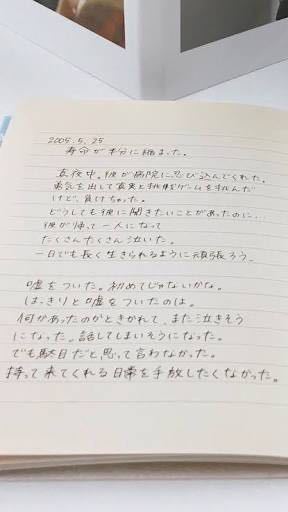 2005.5.25
寿命が半分に縮まった。
真夜中。彼が病院に忍び込んでくれた。
勇気を出して真実と挑戦ゲームを挑んだ
けど、負けちゃった。
どうしても彼に聞きたいことがあったのに..
彼が帰って一人になって
たくさんたくさん泣いた。
一日でも長く生きられるように頑張ろう。
嘘をついた。初めてじゃないかな。
はっきりと嘘をついたのは。
何があったのかときかれて、また泣きそう
になった。話してしまいそうになった。
でも駄目だと思って言わなかった。
持って来てくれる日常を手放したくなかった。